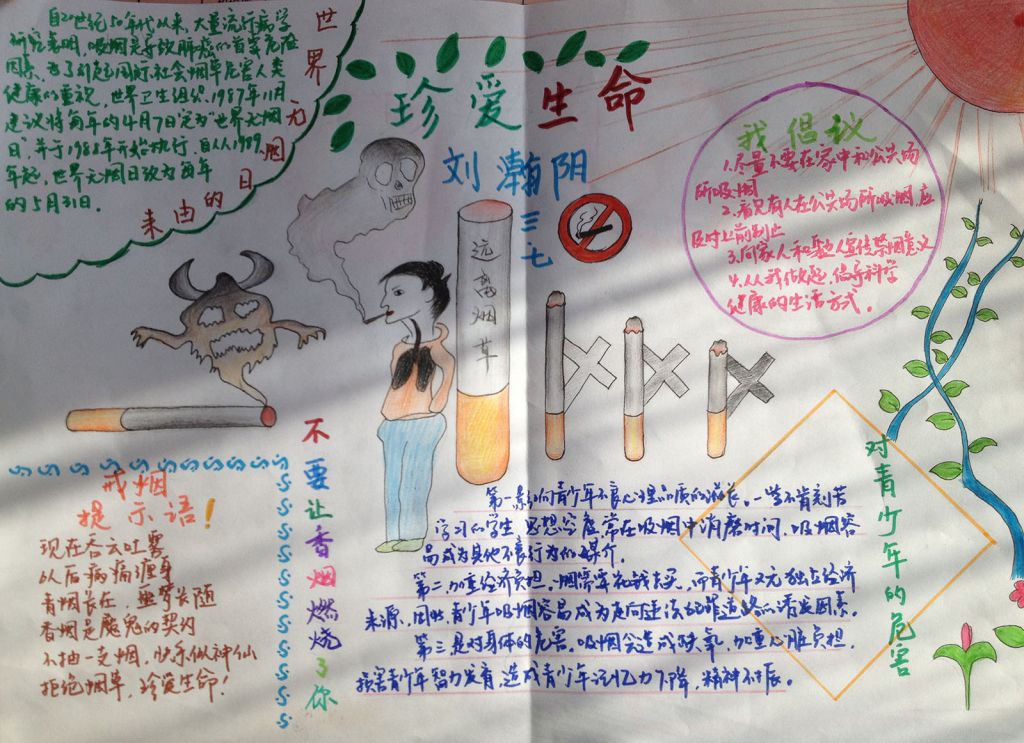 自20世纪50年代以来，大量流行病学
研究表明，吸烟是导致肺癌的首要危险
因素，为了引起国际社会烟草危害人类
健康的重视，世界卫生组织1987年11月
建议将每年的4月7日定为"世界无烟
日，并于1988年开始执行，自从1989
年起，世界无烟日改为每年
的5月31日。
世界无烟日的由来
珍爱生命
刘瀚阴
三七
远离烟草
我倡议
1.尽量不要在家中和公共场
所吸烟
2.看见有人在公共场所吸烟应
及时上前制止
3.向家人和
宣传禁烟意义
4.从我做起，倡导科学
健康的生活方式。
戒烟
提示语！
现在吞云吐雾
以后病痛缠身
青烟长在，噩梦长随
香烟是魔鬼的契约
不抽一支烟，快乐似神仙
拒绝烟草，珍爱生命！
不要让香烟燃烧了你
对青少年的危害
第一影响青少年不良心理品质的滋长。一些不肯刻苦
学习的学生，思想空虚常在吸烟中消磨时间，吸烟容
易成为其他不良行为的媒介。
第二加重经济负担。烟需要花钱去买，而青少年又无独立经济
来源，因此青少年吸烟容易成为走向违法犯罪道路的诱发因素。
第三是对身体的危害。吸烟会造成缺氧，加重心脏负担，
损害青少年智力发育，造成青少年记忆力下降，精神不振。